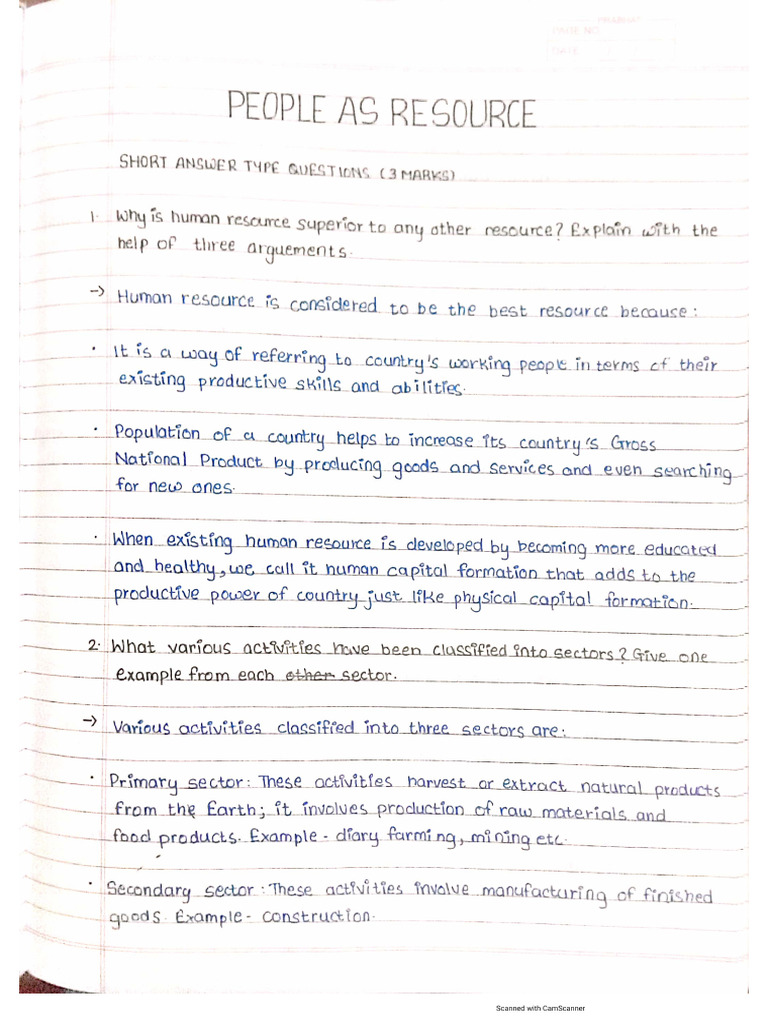 PRABHAT
PAGE NO.
DATE
PEOPLE AS RESOURCE
SHORT ANSWER TYPE QUESTIONS (3 MARKS)
1. Why is human resource superior to any other resource? Explain with the
help of three arguements.
→ Human resource is considered to be the best resource because:
• It is a way of referring to country's working people in terms of their
existing productive skills and abilities.
• Population of a country helps to increase its country's Gross
National Product by producing goods and services and even searching
for new ones.
• When existing human resource is developed by becoming more educated
and healthy, we call it human capital formation that adds to the
productive power of country just like physical capital formation.
2. What various activities have been classified into sectors? Give one
example from each other sector.
→ Various activities classified into three sectors are:
• Primary sector: These activities harvest or extract natural products
from the Earth; it involves production of raw materials and
food products. Example - diary farming, mining etc.
• Secondary sector: These activities involve manufacturing of finished
goods. Example - construction.
Scanned with CamScanner